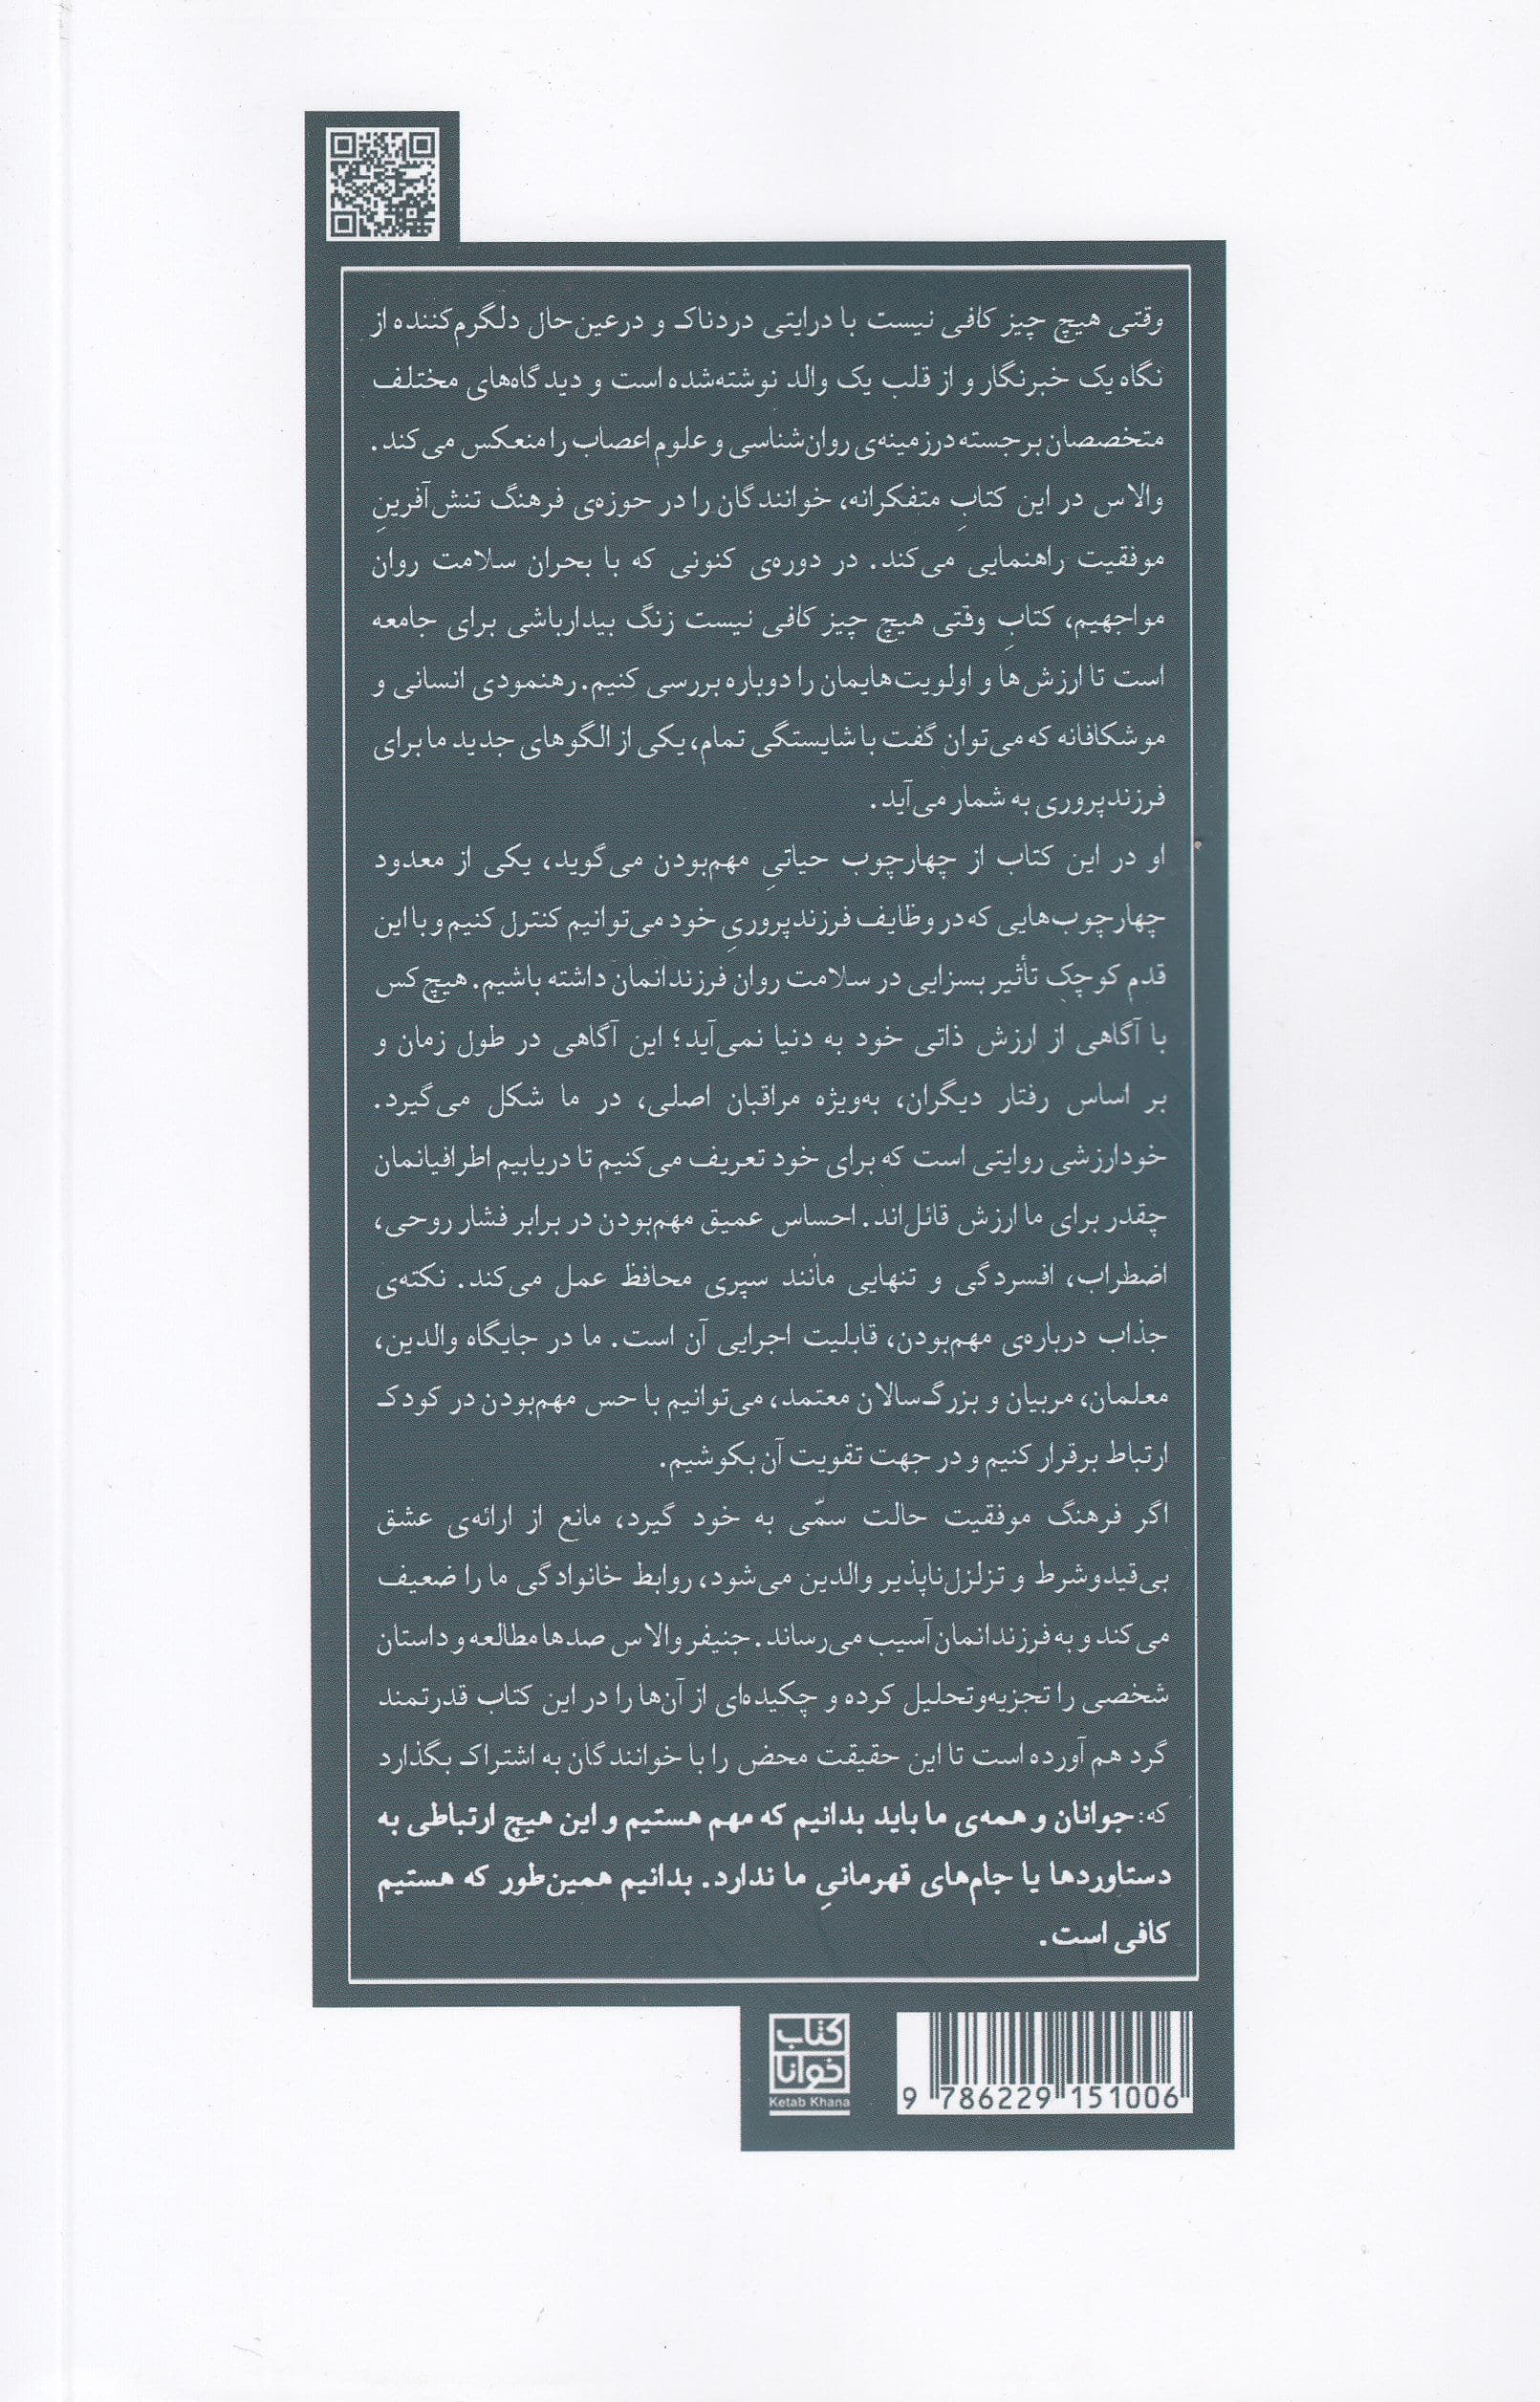 وقتی هیچ چیز کافی نیست با درایتی دردناک و درعین‌حال دلگرم‌کننده از
نگاه یک خبرنگار و از قلب یک والد نوشته‌شده است و دیدگاه‌های مختلف
متخصصان برجسته درزمینه‌ی روان‌شناسی و علوم اعصاب را منعکس می‌کند.
والاس در این کتابِ متفکرانه، خوانندگان را در حوزه‌ی فرهنگ تنش‌آفرینِ
موفقیت راهنمایی می‌کند. در دوره‌ی کنونی که با بحران سلامت روان
مواجهیم، کتابِ وقتی هیچ چیز کافی نیست زنگ بیدارباشی برای جامعه
است تا ارزش‌ها و اولویت‌هایمان را دوباره بررسی کنیم. رهنمودی انسانی و
موشکافانه که می‌توان گفت با شایستگی تمام، یکی از الگوهای جدید ما برای
فرزندپروری به شمار می‌آید.
او در این کتاب از چهارچوب حیاتیِ مهم‌بودن می‌گوید، یکی از معدود
چهارچوب‌هایی که در وظایف فرزندپروریِ خود می‌توانیم کنترل کنیم و با این
قدم کوچک تأثیر بسزایی در سلامت روان فرزندانمان داشته باشیم. هیچ کس
با آگاهی از ارزش ذاتی خود به دنیا نمی‌آید؛ این آگاهی در طول زمان و
بر اساس رفتار دیگران، به‌ویژه مراقبان اصلی، در ما شکل می‌گیرد.
خودارزشی روایتی است که برای خود تعریف می‌کنیم تا دریابیم اطرافیانمان
چقدر برای ما ارزش قائل‌اند. احساس عمیق مهم‌بودن در برابر فشار روحی،
اضطراب، افسردگی و تنهایی مانند سپری محافظ عمل می‌کند. نکته‌ی
جذاب درباره‌ی مهم‌بودن، قابلیت اجرایی آن است. ما در جایگاه والدین،
معلمان، مربیان و بزرگ‌سالان معتمد، می‌توانیم با حس مهم‌بودن در کودک
ارتباط برقرار کنیم و در جهت تقویت آن بکوشیم.
اگر فرهنگ موفقیت حالت سمّی به خود گیرد، مانع از ارائه‌ی عشق
بی‌قیدوشرط و تزلزل‌ناپذیر والدین می‌شود، روابط خانوادگی ما را ضعیف
می‌کند و به فرزندانمان آسیب می‌رساند. جنیفر والاس صدها مطالعه و داستان
شخصی را تجزیه‌وتحلیل کرده و چکیده‌ای از آن‌ها را در این کتاب قدرتمند
گرد هم آورده است تا این حقیقت محض را با خوانندگان به اشتراک بگذارد
که: جوانان و همه‌ی ما باید بدانیم که مهم هستیم و این هیچ ارتباطی به
دستاوردها یا جام‌های قهرمانیِ ما ندارد. بدانیم همین‌طور که هستیم
کافی است.
کتاب
خوانا
Ketab Khana
9 786229 151006